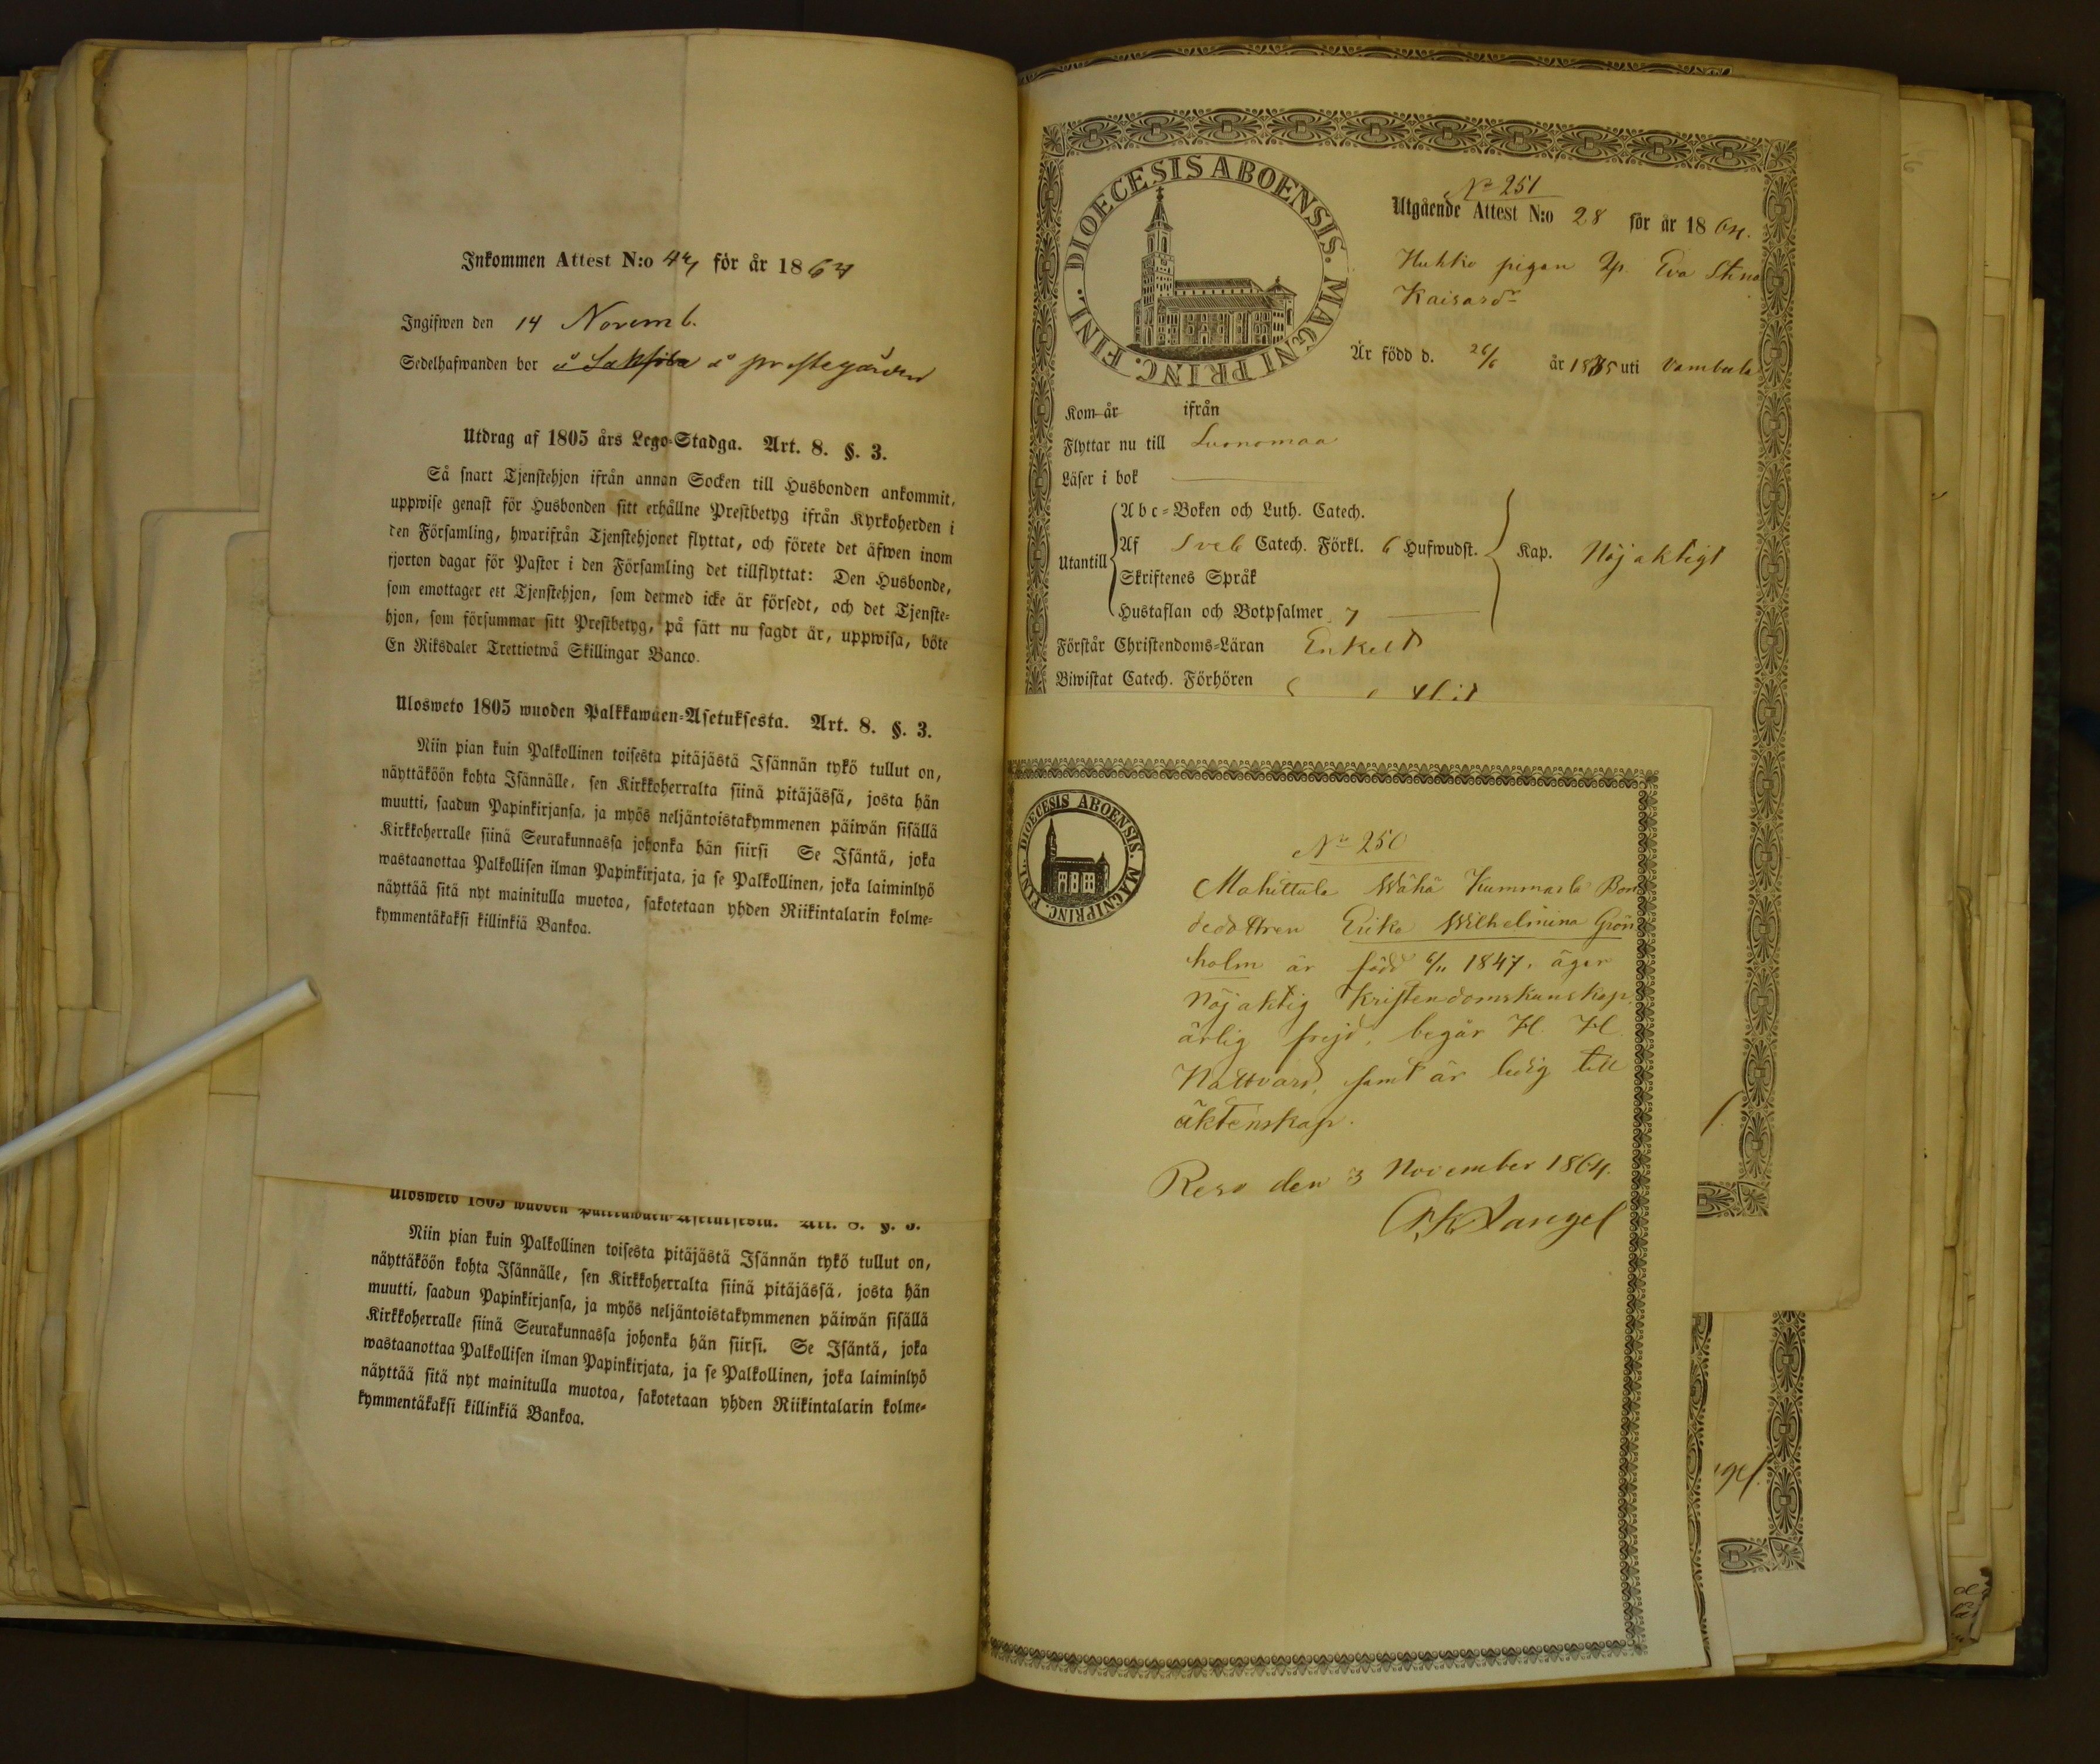 Inkommen Attest N:o 44 för år 1864
Ingifwen den 14 Novemb.
Sedelhafwanden bor å å prestegården
Utdrag af 1805 års Lego-Stadga. Art. 8. §. 3.
Så snart Tjenstehjon ifrån annan Socken till Husbonden ankommit,
uppwise genast för Husbonden sitt erhållne Prestbetyg ifrån Kyrkoherden i
den Församling, hwarifrån Tjenstehjonet flyttat, och förete det äfwen inom
fjorton dagar för Pastor i den Församling det tillflyttat: Den Husbonde,
som emottager ett Tjenstehjon, som dermed icke är försedt, och det Tjenste-
hjon, som försummar sitt Prestbetyg, på sätt nu sagdt är, uppwisa, böte
En Riksdaler Trettiotwå Skillingar Banco.
Ulosweto 1805 wuoden Palkkawäen-Asetuksesta. Art. 8. §. 3.
Niin pian kuin Palkollinen toisesta pitäjästä Isännän tykö tullut on,
näyttäköön kohta Isännälle, sen Kirkkoherralta siinä pitäjässä, josta hän
muutti, saadun Papinkirjansa, ja myös neljäntoistakymmenen päiwän sisällä
Kirkkoherralle siinä Seurakunnassa johonka hän siirsi Se Isäntä, joka
wastaanottaa Palkollisen ilman Papinkirjata, ja se Palkollinen, joka laiminlyö
näyttää sitä nyt mainitulla muotoa, sakotetaan yhden Riikintalarin kolme-
kymmentäkaksi killinkiä Bankoa.
Ulosweto 1805 wuoden Palkkawäen-Asetuksesta. Art. 8. §. 3.
Niin pian kuin Palkollinen toisesta pitäjästä Isännän tykö tullut on,
näyttäköön kohta Isännälle, sen Kirkkoherralta siinä pitäjässä, josta hän
muutti, saadun Papinkirjansa, ja myös neljäntoistakymmenen päiwän sisällä
Kirkkoherralle siinä Seurakunnassa johonka hän siirsi. Se Isäntä, joka
wastaanottaa Palkollisen ilman Papinkirjata, ja se Palkollinen, joka laiminlyö
näyttää sitä nyt mainitulla muotoa, sakotetaan yhden Riikintalarin kolme-
kymmentäkaksi killinkiä Bankoa.
DIOECESIS ABOENSIS. MAGNI PRINC. FINL.
No 251
Utgående Attest N:o 28 för år 1864.
Huhko pigan Eva Stina
Kaisasdr
Är född d. 26/6 år 18 uti Vambula
Kom år ifrån
Flyttar nu till Luonomaa
Läser i bok
Abc-Boken och Luth. Catech.
Utantill Af Sveb Catech. Förkl. 6 Hufwudst. Kap. Nöjaktigt
Skriftenes Språk
Hustaflan och Botpsalmer 7
Förstår Christendoms-Läran Enkelt
Biwistat Catech. Förhören
DIOECESIS ABOENSIS. MAGNI PRINC. FINL.
No 250
Mahittula Wähä Kummarla Bon
dedottren Erika Wilhelmina Grön
holm är född 6/11 1847, äger
nöjaktig Kristendomskunskap,
ärlig frejd, begår H. H.
Nattvard, samt är ledig till
äktenskap.
Reso den 3 November 1864.
Langel